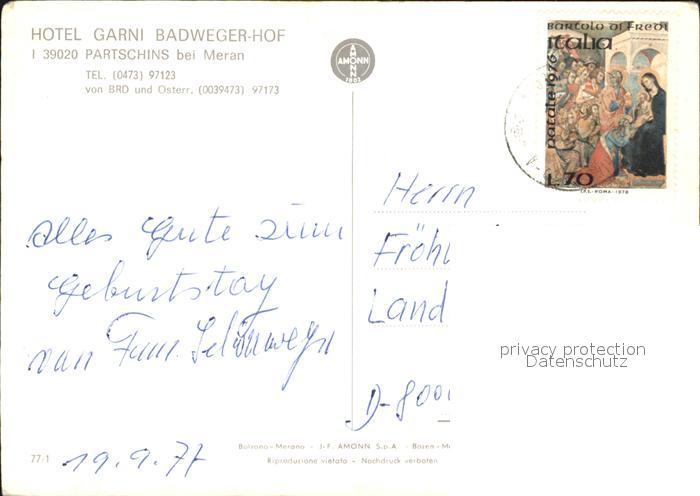 HOTEL GARNI BADWEGER-HOF
I 39020 PARTSCHINS bei Meran
TEL. (0473) 97123
von BRD und Österr. (0039473) 97173
AMONN
AMONN
1802
BARTOLO DI FREDI
italia
natale 1976
L.70
I.P.S.-ROMA-1976
Herrn
Fröhl
Land
D-800
alles Gute zum
Geburtstag
von Fam. Schönweger
19.9.77
privacy protection
Datenschutz
77/1
Bolzano-Merano - J-F. AMONN S.p.A. - Bozen-M
Riproduzione vietata - Nachdruck verboten